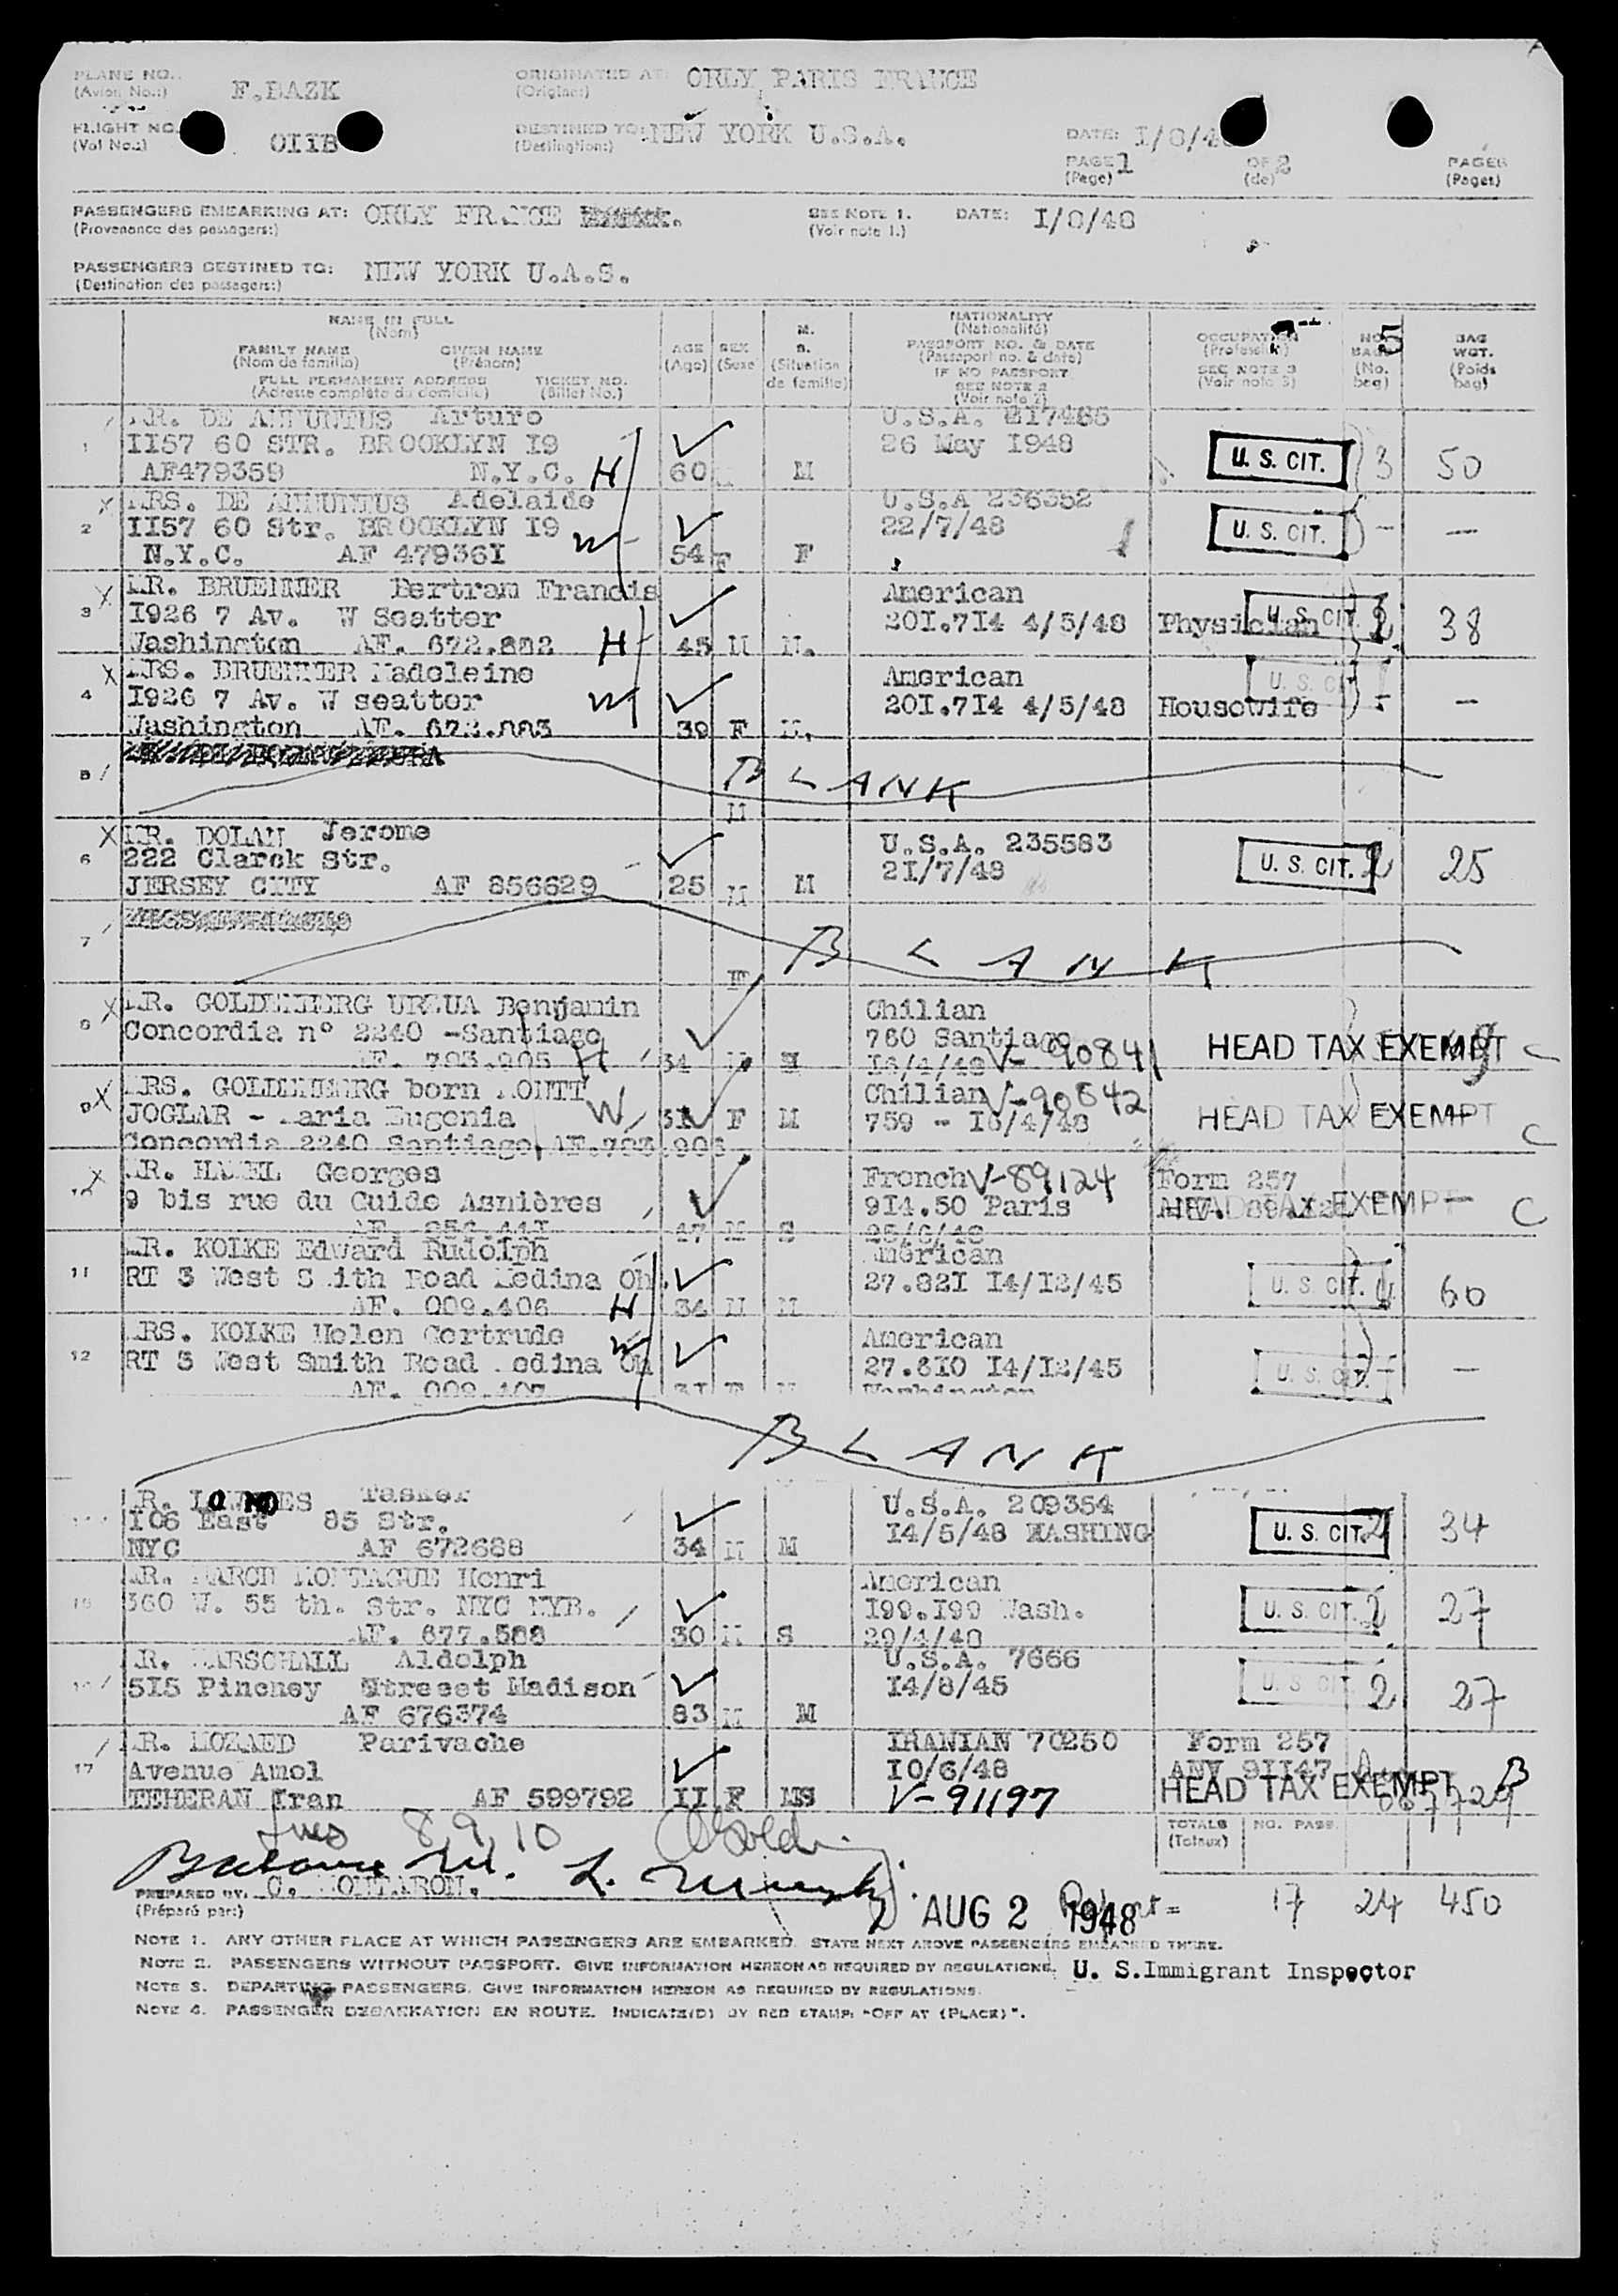 PLANE NO.: F.BAZK ORIGINATED AT: ORLY PARIS FRANCE
(Avion No.:) (Origine:)
FLIGHT NO. OIIB DESTINED TO: NEW YORK U.S.A. DATE: I/8/4
(Vol No.:) (Destination:)
PAGE 1 OF 2 PAGES
(Page) (de) (Pages)
PASSENGERS EMBARKING AT: ORLY FRANCE SEE NOTE 1. DATE: I/8/48
(Provenance des passagers:) (Voir note 1.)
PASSENGERS DESTINED TO: NEW YORK U.A.S.
(Destination des passagers:)
NAME IN FULL
(Nom)
FAMILY NAME GIVEN NAME
(Nom de famille) (Prénom)
FULL PERMANENT ADDRESS TICKET NO.
(Adresse complète du domicile) (Billet No.)
AGE
(Age)
SEX
(Sexe)
M.
S.
(Situation
de famille)
NATIONALITY
(Nationalité)
PASSPORT NO. & DATE
(Passeport no. & date)
IF NO PASSPORT
SEE NOTE 2
(Voir note 2)
OCCUPATION
(Profession)
SEE NOTE 3
(Voir note 3)
NO.
BAGS
(No.
bag)
5
BAG
WGT.
(Poids
bag)
MR. DE ANNUNTUS Arturo U.S.A. 217485
1 II57 60 STR. BROOKLYN I9 26 May I948 U. S. CIT. 3 50
AF479359 N.Y.C. H 60 M
MRS. DE ANNUNTUS Adelaide U.S.A 236352
2 II57 60 Str. BROOKLYN I9 W 22/7/48 U. S. CIT. - -
N.Y.C. AF 47936I 54 F F
MR. BRUENNER Bertram Francis American
3 I926 7 Av. W Seatter 20I.7I4 4/5/48 Physician U. S. CIT. 2 38
Washington AF. 672.882 H 45 M M.
MRS. BRUENNER Madeleine American
4 I926 7 Av. W seatter W 20I.7I4 4/5/48 Housewife U. S. CIT. - -
Washington AF. 672.883 39 F M.
5 BLANK
M
MR. DOLAN Jerome U.S.A. 235583
6 222 Clarck Str. 2I/7/48 U. S. CIT. 2 25
JERSEY CITY AF 856629 25 M M
7 BLANK
F
MR. GOLDENBERG URZUA Benyamin Chilian
Concordia n° 2240 -Santiago 760 Santiago HEAD TAX EXEMPT C
AF. 793.905 H 34 I6/4/48 V-90841
MRS. GOLDENBERG born MONTT Chilian V-90842
9 JOGLAR - Maria Eugenia W 31 F M 759 - I6/4/48 HEAD TAX EXEMPT C
Concordia 2240 Santiago AF.793.906
MR. HAMEL Georges French V-89124 Form 257
10 9 bis rue du Guide Asnières 9I4.50 Paris HEAD TAX EXEMPT - C
AF. 856.44I 47 M S 25/6/48
MR. KOLKE Edward Rudolph American
11 RT 3 West Smith Road Medina Oh. 27.82I I4/I2/45 U. S. CIT. 60
AF. 009.406 H 34 M M
MRS. KOLKE Helen Gertrude American
12 RT 3 West Smith Road Medina Oh W 27.8I0 I4/I2/45 U. S. CIT. - -
AF. 009.407 3I F M Washington
BLANK
MR. Tasker U.S.A. 209354
I06 East 85 Str. I4/5/48 WASHING U. S. CIT. 2 34
NYC AF 672688 34 M M
MR. MARCH MONTAGUE Henri American
15 360 W. 55 th. Str. NYC NYB. I99.I99 Wash. U. S. CIT. 2 27
AF. 677.588 30 M S 29/4/48
MR. MARSCHALL Aldolph U.S.A. 7666
16 5I5 Pincney Streeet Madison I4/8/45 U. S. CIT. 2 27
AF 676374 83 M M
MR. MOZAED Parivache IRANIAN 70250 Form 257
17 Avenue Amol I0/6/48 ANV 91147 B
TEHERAN Iran AF 599792 II F MS V-91197 HEAD TAX EXEMPT
8, 9, 10
TOTALS NO. PASS.
(Totaux)
PREPARED BY: C. MONTARON.
(Préparé par:)
AUG 2 1948 17 24 450
NOTE 1. ANY OTHER PLACE AT WHICH PASSENGERS ARE EMBARKED. STATE NEXT ABOVE PASSENGERS EMBARKED THERE.
NOTE 2. PASSENGERS WITHOUT PASSPORT. GIVE INFORMATION HEREON AS REQUIRED BY REGULATIONS.
U. S. Immigrant Inspector
NOTE 3. DEPARTING PASSENGERS. GIVE INFORMATION HEREON AS REQUIRED BY REGULATIONS.
NOTE 4. PASSENGER DEBARKATION EN ROUTE. INDICATE(D) BY RED STAMP: "OFF AT (PLACE)".